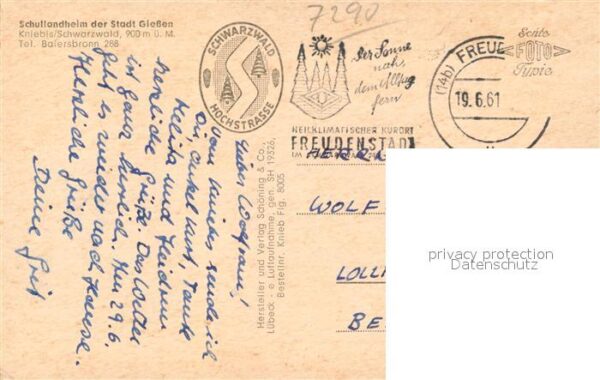 7290
Schullandheim der Stadt Gießen
Kniebis/Schwarzwald, 900 m ü. M.
Tel. Baiersbronn 288
SCHWARZWALD
HOCHSTRASSE
Der Sonne
nach,
dem Alltag
fern
HEILKLIMATISCHER KURORT
FREUDENSTADT
IM
(14b) FREUD
19.6.61
Echte
FOTO
Typie
Lieber Wolfram!
Vom Kniebis sende ich
Dir, Onkel Kurt, Tante
und
herzliche Grüße. Das Wetter
ist ganz herrlich. Am 29.6.
geht es wieder nach Hause.
Herzliche Grüße
Deine
Hersteller und Verlag Schöning & Co.,
Lübeck - e Luftaufnahme, gen. SH 19326,
Bestellnr. Knieb Fig. 8005
HERRN
WOLF
LOLL
BE
privacy protection
Datenschutz